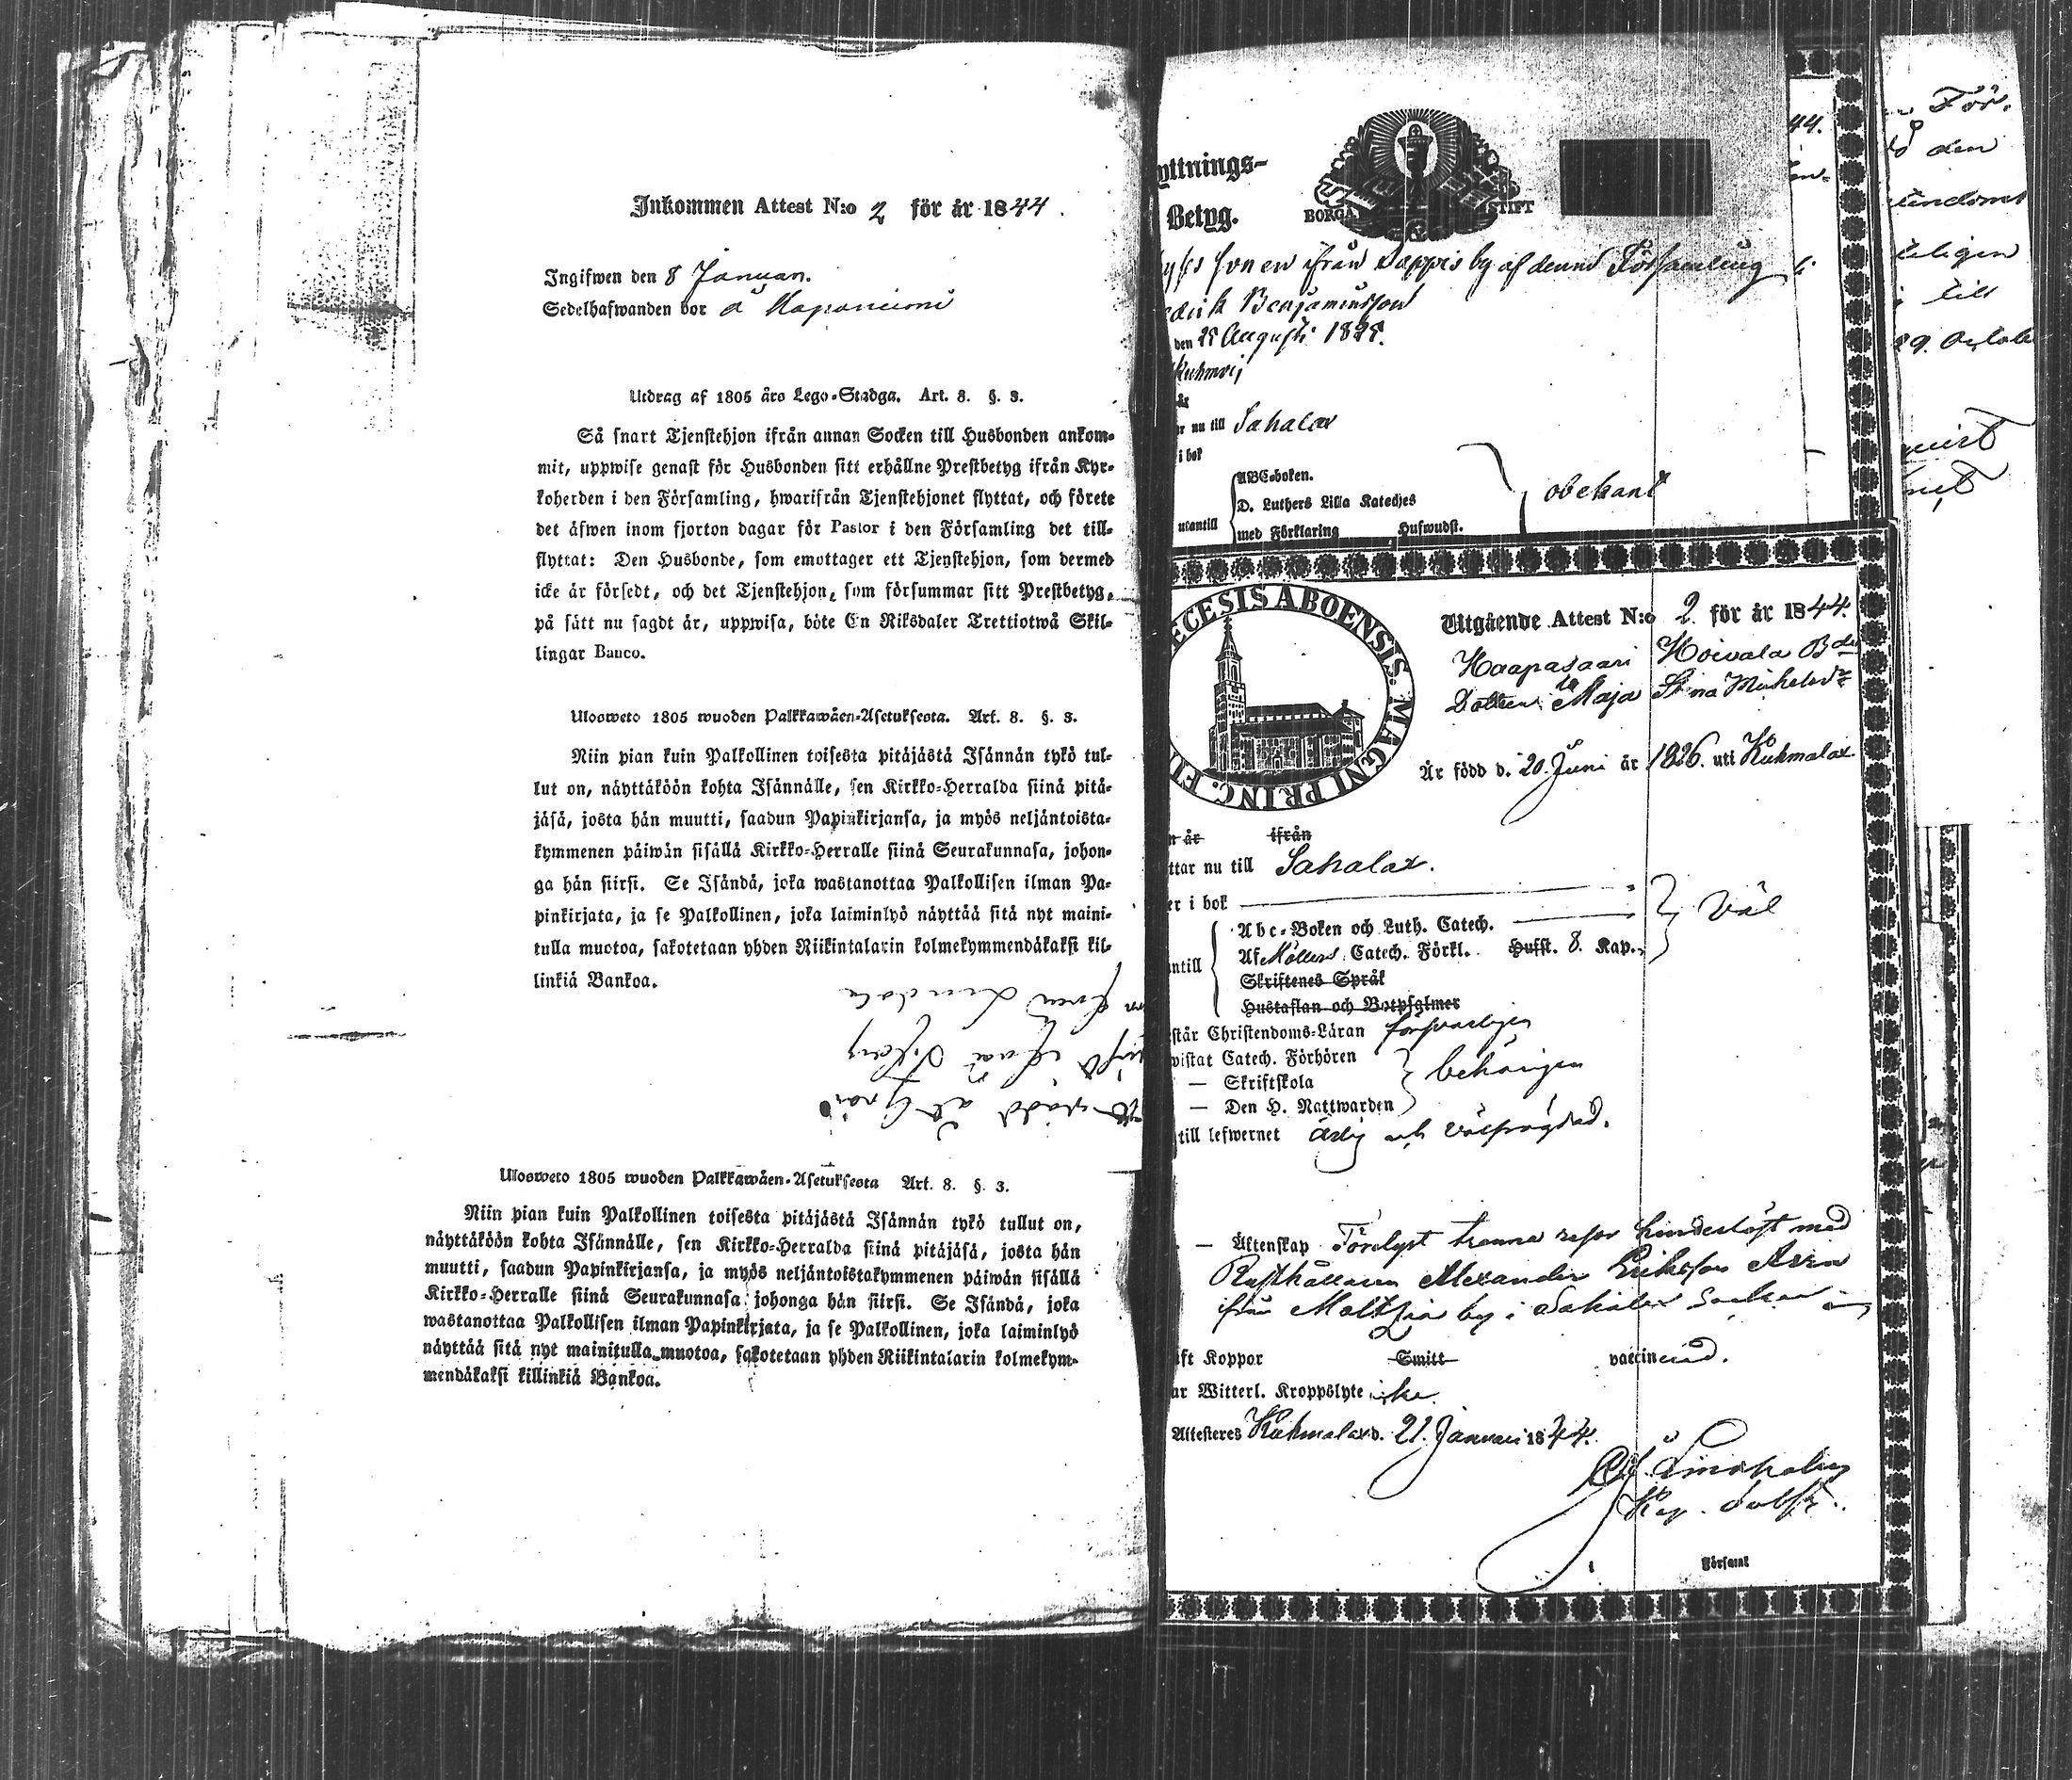 Inkommen Attest N:o 2 för år 1844.
Ingifwen den 8 Januari.
Sedelhafwanden bor å
Utdrag af 1805 års Lego-Stadga. Art. 8. §. 3.
Så snart Tjenstehjon ifrån annan Socken till Husbonden ankom-
mit, uppwise genast för Husbonden sitt erhållne Prestbetyg ifrån Kyr-
koherden i den Församling, hwarifrån Tjenstehjonet flyttat, och förete
det äfwen inom fjorton dagar för Pastor i den Församling det till-
flyttat: Den Husbonde, som emottager ett Tjenstehjon, som dermed
icke är försedt, och det Tjenstehjon, som försummar sitt Prestbetyg,
på sätt nu sagdt är, uppwisa, böte En Riksdaler Trettiotwå Skil-
lingar Banco.
Ulosweto 1805 wuoden Palkkawäen-Asetuksesta. Art. 8. §. 3.
Niin pian kuin Palkollinen toisesta pitäjästä Isännän tykö tul-
lut on, näyttäköön kohta Isännälle, sen Kirkko-Herralda siinä pitä-
jäsä, josta hän muutti, saadun Papinkirjansa, ja myös neljäntoista-
kymmenen päiwän sisällä Kirkko-Herralle siinä Seurakunnasa, johon-
ga hän siirsi. Se Isändä, joka wastanottaa Palkollisen ilman Pa-
pinkirjata, ja se Palkollinen, joka laiminlyö näyttää sitä nyt maini-
tulla muotoa, sakotetaan yhden Riikintalarin kolmekymmendäkaksi kil-
linkiä Bankoa.
Ulosweto 1805 wuoden Palkkawäen-Asetuksesta Art. 8. §. 3.
Niin pian kuin Palkollinen toisesta pitäjästä Isännän tykö tullut on,
näyttäköön kohta Isännälle, sen Kirkko-Herralda siinä pitäjäsä, josta hän
muutti, saadun Papinkirjansa, ja myös neljäntoistakymmenen päiwän sisällä
Kirkko-Herralle siinä Seurakunnasa johonga hän siirsi. Se Isändä, joka
wastanottaa Palkollisen ilman Papinkirjata, ja se Palkollinen, joka laiminlyö
näyttää sitä nyt mainitulla muotoa, sakotetaan yhden Riikintalarin kolmekym-
mendäkaksi killinkiä Bankoa.
yttnings-
Betyg.
BORGÅ STIFT
sonen ifrån Pappis by af denna Församling
edrik Benjaminsson
den 25 Augusti
Kuhmoi
år
r nu till Sahalax
i bok
ABC-boken.
D. Luthers Lilla Kateches
utantill
med Förklaring Hufwudst.
obekant
ECESIS ABOENSIS. MAGNI PRINC. FI
Utgående Attest N:o 2 för år 1844.
Haapasaari Hoivala
Dottern Maja Stina
Är född d. 20. Juni år 1826. uti Kuhmalax
n år ifrån
ttar nu till Sahalax.
er i bok
Abc-Boken och Luth. Catech.
Af Möllers Catech. Förkl. Hufst. 8. Kap.
Väl
ntill
Skriftenes Språk
Hustaflan och Botpsalmer
står Christendoms-Läran försvarligen
vistat Catech. Förhören
— Skriftskola
behörigen
— Den H. Nattwarden
till lefwernet ärlig och välfrägdad.
— Äktenskap Förelyst trenne resor hinderslöst med
Rusthållaren Alexander Eriksson
från by i Sahalax Socken
ft Koppor Smitt vaccinerad.
ar Witterl. Kroppslyte icke.
Attesteres Kuhmalax d. 21. Januari 1844.
Församl
44.
För.
den
till
29. Octob